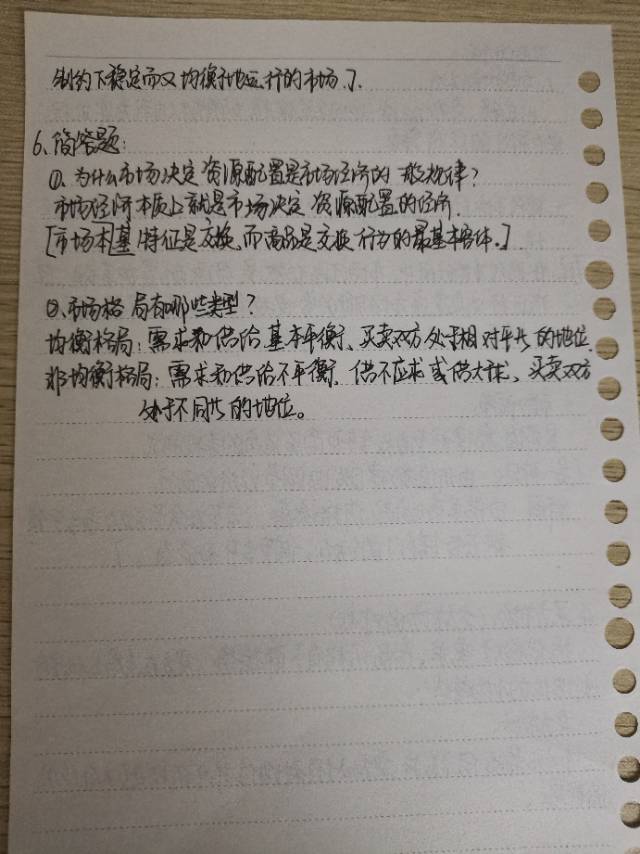 制约下稳定而又均衡地运行的市场.】.
6.简答题:
①.为什么市场决定资源配置是市场经济的一般规律?
市场经济本质上就是市场决定资源配置的经济.
[市场本基特征是交换,而商品是交换行为的最基本客体.]
②.市场格局有哪些类型?
均衡格局:需求和供给基本平衡、买卖双方处于相对平等的地位.
非均衡格局:需求和供给不平衡,供不应求或供大于求、买卖双方
处于不同等的地位。